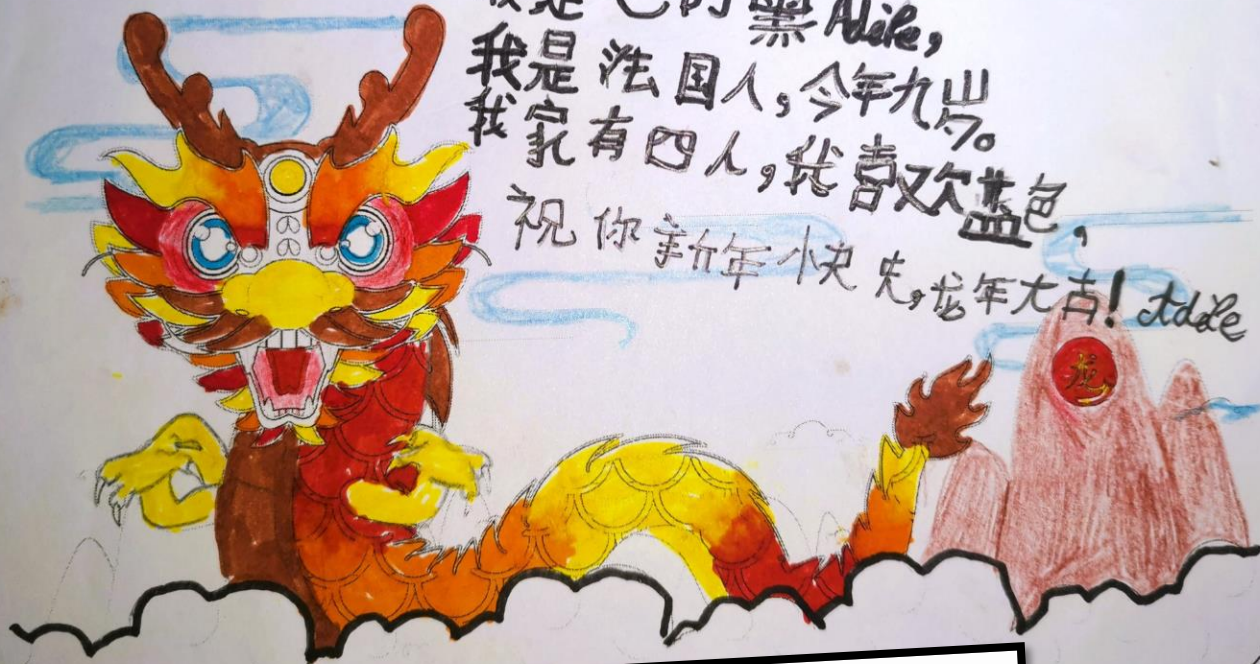 我是 Adile,
我是法国人,今年九岁。
我家有四人,我喜欢蓝色,
祝你新年快乐,龙年大吉! Adele
龙